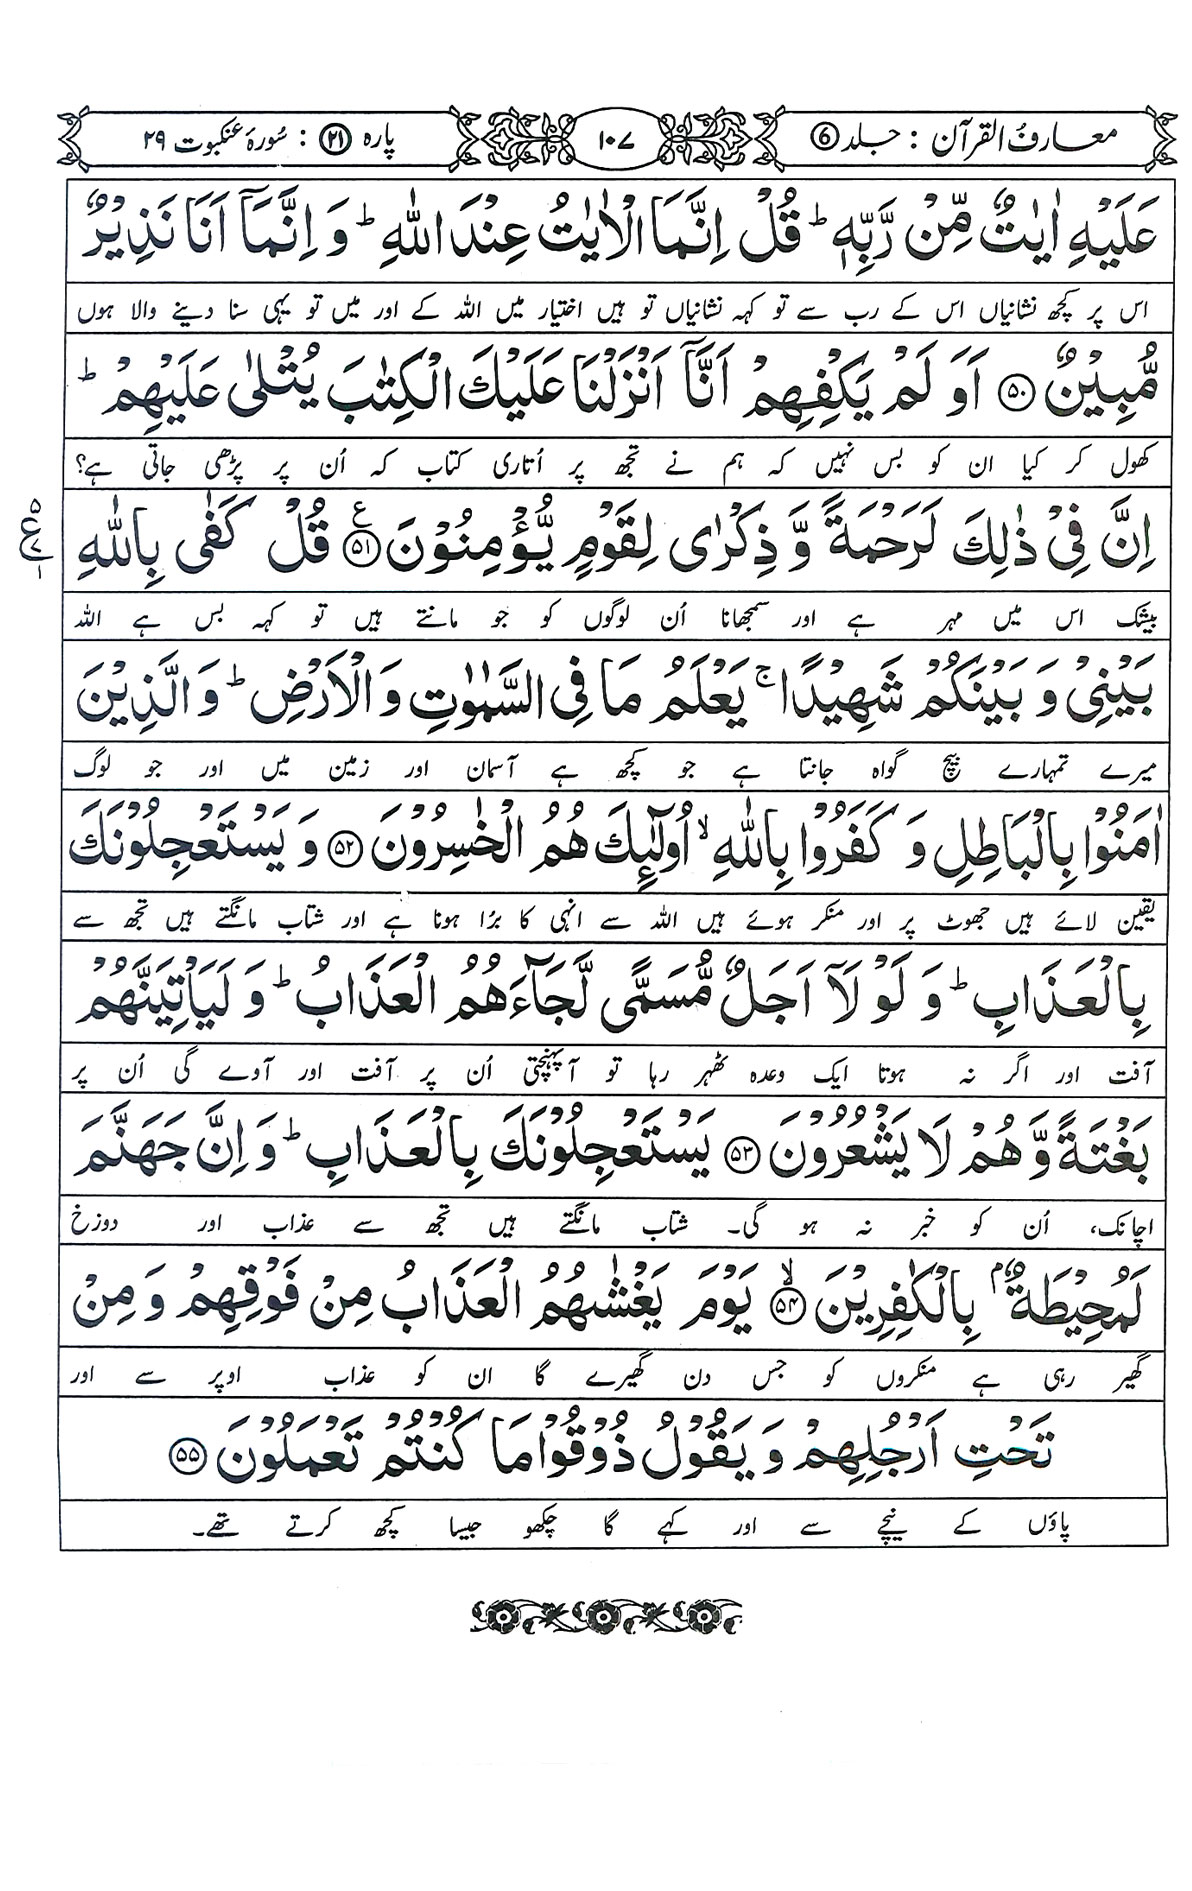 معارفُ القرآن : جلد ⑥
۱۰۷
پارہ ㉑ : سُورۂ عنکبوت ۲۹
عَلَيْهِ اٰيٰتٌ مِّنْ رَّبِّهٖ ؕ قُلْ اِنَّمَا الْاٰيٰتُ عِنْدَ اللّٰهِ ؕ وَ اِنَّمَآ اَنَا نَذِيْرٌ
اس پر کچھ نشانیاں اس کے رب سے تو کہہ نشانیاں تو ہیں اختیار میں اللہ کے اور میں تو یہی سنا دینے والا ہوں
مُّبِيْنٌ ﴿۵۰﴾ اَوَ لَمْ يَكْفِهِمْ اَنَّآ اَنْزَلْنَا عَلَيْكَ الْكِتٰبَ يُتْلٰى عَلَيْهِمْ ؕ
کھول کر کیا ان کو بس نہیں کہ ہم نے تجھ پر اُتاری کتاب کہ اُن پر پڑھی جاتی ہے؟
اِنَّ فِيْ ذٰلِكَ لَرَحْمَةً وَّ ذِكْرٰى لِقَوْمٍ يُّؤْمِنُوْنَ ﴿۵۱﴾ ع قُلْ كَفٰى بِاللّٰهِ
۵ ع ۷ ۱
بیشک اس میں مہر ہے اور سمجھانا اُن لوگوں کو جو مانتے ہیں تو کہہ بس ہے اللہ
بَيْنِيْ وَ بَيْنَكُمْ شَهِيْدًا ۚ يَعْلَمُ مَا فِي السَّمٰوٰتِ وَ الْاَرْضِ ؕ وَ الَّذِيْنَ
میرے تمہارے بیچ گواہ جانتا ہے جو کچھ ہے آسمان اور زمین میں اور جو لوگ
اٰمَنُوْا بِالْبَاطِلِ وَ كَفَرُوْا بِاللّٰهِ ۙ اُولٰٓئِكَ هُمُ الْخٰسِرُوْنَ ﴿۵۲﴾ وَ يَسْتَعْجِلُوْنَكَ
یقین لائے ہیں جھوٹ پر اور منکر ہوئے ہیں اللہ سے انہی کا بڑا ہونا ہے اور شتاب مانگتے ہیں تجھ سے
بِالْعَذَابِ ؕ وَ لَوْ لَآ اَجَلٌ مُّسَمًّى لَّجَآءَهُمُ الْعَذَابُ ؕ وَ لَيَاْتِيَنَّهُمْ
آفت اور اگر نہ ہوتا ایک وعدہ ٹھہر رہا تو آپہنچتی اُن پر آفت اور آوے گی اُن پر
بَغْتَةً وَّ هُمْ لَا يَشْعُرُوْنَ ﴿۵۳﴾ يَسْتَعْجِلُوْنَكَ بِالْعَذَابِ ؕ وَ اِنَّ جَهَنَّمَ
اچانک، اُن کو خبر نہ ہو گی۔ شتاب مانگتے ہیں تجھ سے عذاب اور دوزخ
لَمُحِيْطَةٌۢ بِالْكٰفِرِيْنَ ﴿۵۴﴾ ۙ يَوْمَ يَغْشٰىهُمُ الْعَذَابُ مِنْ فَوْقِهِمْ وَ مِنْ
گھیر رہی ہے منکروں کو جس دن گھیرے گا ان کو عذاب اوپر سے اور
تَحْتِ اَرْجُلِهِمْ وَ يَقُوْلُ ذُوْقُوْا مَا كُنْتُمْ تَعْمَلُوْنَ ﴿۵۵﴾
پاؤں کے نیچے سے اور کہے گا چکھو جیسا کچھ کرتے تھے۔